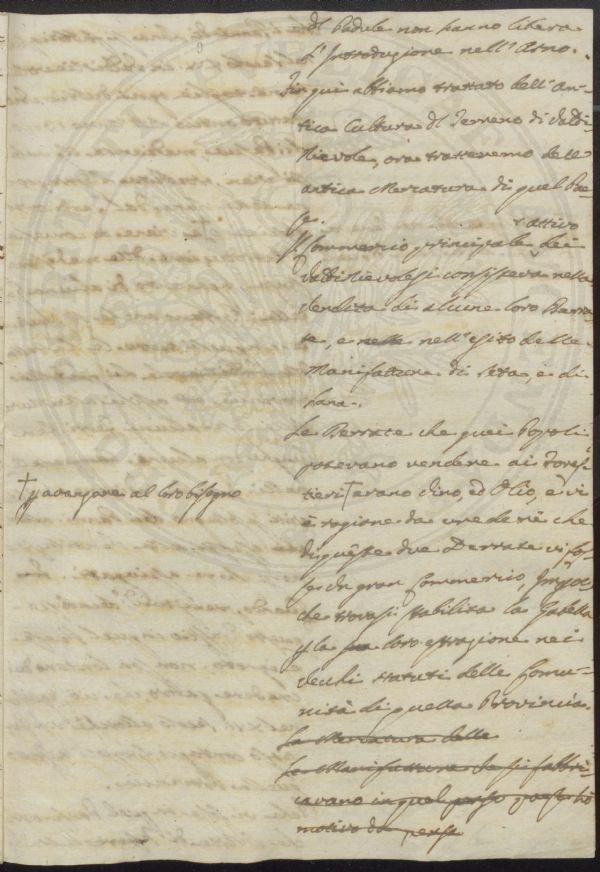 del Padule non hanno libera
l'Introduzione nell'Arno.
Fin qui abbiamo trattato dell'An=
tica Cultura del Terreno di Valdi
Nievole, ora tratteremo dell'
antica Mercatura di quel Pae=
se.
+ attivo
Il Commercio principale dei
Valdinievolesi consisteva nella
Vendita di alcune loro Derra
te, e nelle nell'esito delle
Manifatture di seta, e di
Lana.
Le Derrate che quei Popoli
potevano vendere ai Fores=
tieri † erano Vino, ed Olio, e vi
† p avanzare al loro bisogno
è ragione da credere che
di queste due Derrate vi fos=
se un gran Commercio,
che trovasi stabilita la Gabella
p la sua loro estrazione nei
Vecchi statuti delle Comu=
nità di quella Provincia.
La Mercatura delle
Le Manifatture che si fabbri
cavano in quel
motivo